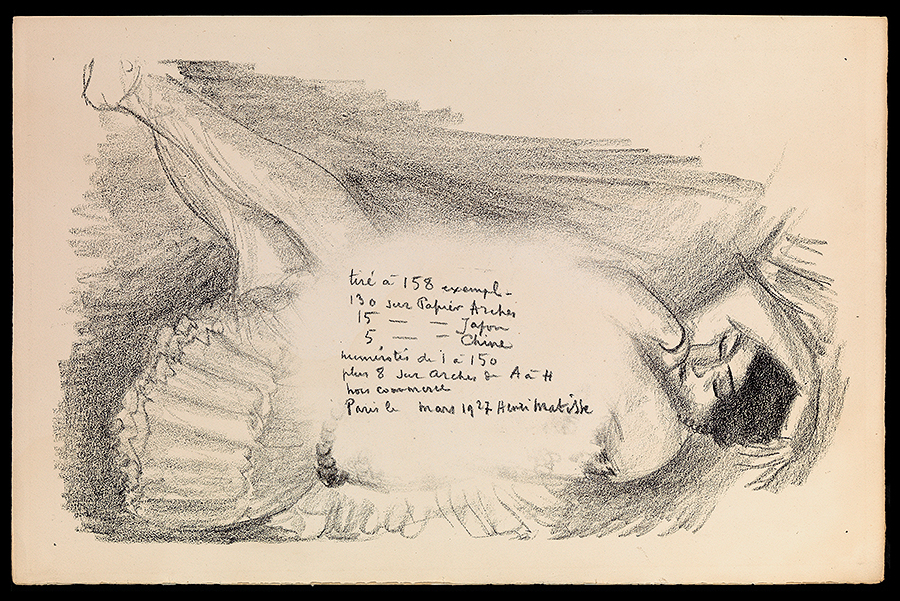 tiré à 158 exempl.
130 sur Papier Arches
15 — — Japon
5 — — Chine
numérotés de 1 à 150
plus 8 sur Arches de A à H
hors commerce
Paris le mars 1927 Henri Matisse